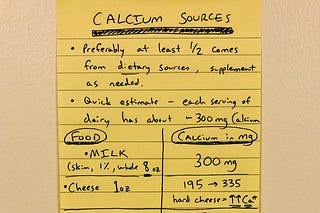 CALCIUM SOURCES
• Preferably at least 1/2 comes
from dietary sources, supplement
as needed.
• Quick estimate - each serving of
dairy has about ~300 mg Calcium
FOOD
CALCIUM in mg
• MILK
(skim, 1%, whole 8 oz
300 mg
• Cheese 1oz
195 → 335
hard cheese = ↑↑ Ca